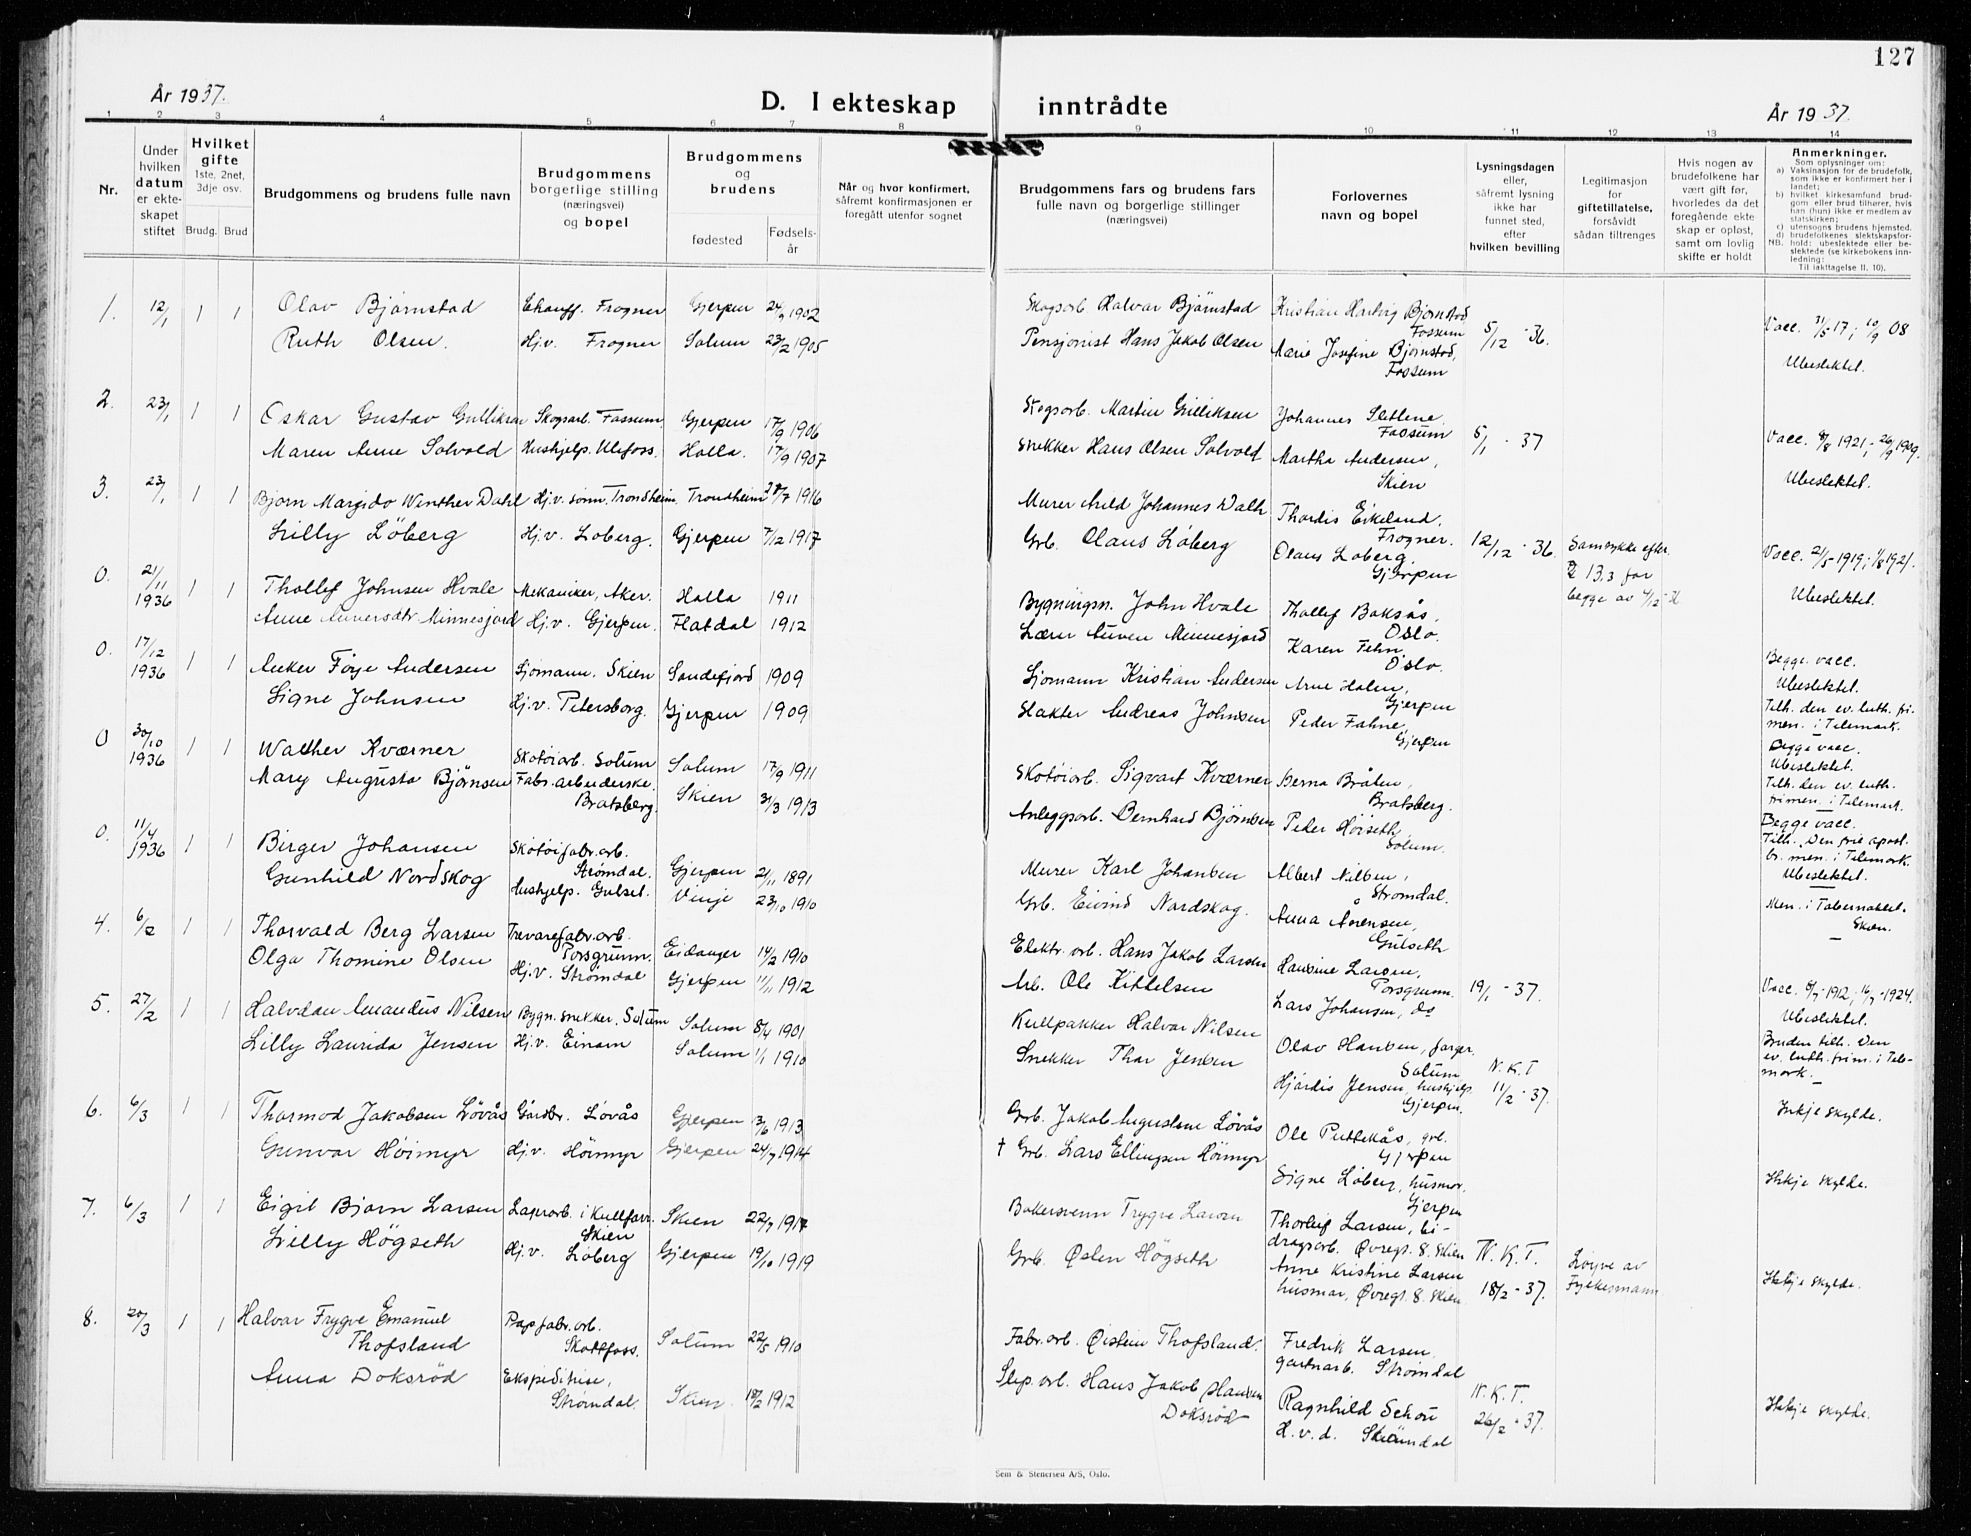 127
År 1937.
D. I ekteskap inntrådte
År 1937.
1 2 3 4 5 6 7 8 9 10 11 12 13 14
Nr.
Under hvilken datum er ekteskapet stiftet
Hvilket gifte
1ste, 2net, 3dje osv.
Brudg. Brud
Brudgommens og brudens fulle navn
Brudgommens borgerlige stilling (næringsvei) og bopel
Brudgommens og brudens
fødested
Fødselsår
Når og hvor konfirmert, såfremt konfirmasjonen er foregått utenfor sognet
Brudgommens fars og brudens fars fulle navn og borgerlige stillinger (næringsvei)
Forlovernes navn og bopel
Lysningsdagen eller, såfremt lysning ikke har funnet sted, efter hvilken bevilling
Legitimasjon for giftetillatelse, forsåvidt sådan tiltrenges
Hvis nogen av brudefolkene har vært gift før, hvorledes da det foregående ekteskap er opløst, samt om lovlig skifte er holdt
Anmerkninger.
Som oplysninger om:
a) Vaksinasjon for de brudefolk, som ikke er konfirmert her i landet;
b) hvilket kirkesamfund brudgom eller brud tilhører, hvis han (hun) ikke er medlem av statskirken;
c) utensogns brudens hjemsted.
d) brudefolkenes slektskapsforhold: ubeslektede eller beslektede (se kirkebokens innledning:
NB.
Til iakttagelse II. 10).
1. 12/1 1 1 Olav Bjørnstad Chauff. Frogner Gjerpen 24/9 1902 Skogsarb. Halvor Bjørnstad Kristian Hartvig Bjørnstad Fossum
Ruth Olsen. Hj.v. Frogner Solum 23/2 1905 Pensjonist Hans Jakob Olsen Marie Josefine Bjørnstad, Fossum 5/12 - 36. Vacc. 31/5 17; 10/9 08
Ubeslektet.
2. 23/1 1 1 Oskar Gustav Gulliksen Skogsarb. Fossum Gjerpen 17/9 1906 Skogsarb. Martin Gulliksen Johannes Slettene Fossum
Maren Anne Solvold Hushjelp. Ulefoss. Holla. 17/9 1907 Snekker Hans Olsen Solvold Martha Andersen, Skien 5/1 - 37 Vacc. 9/8 1921; 26/9 1909.
Ubeslektet.
3. 23/1 1 1 Bjørn Margido Winther Dahl Hj.v. sønn. Trondheim. Trondheim 1916 Murer Arild Johannes Dahl Thordis Eikeland, Frogner.
Lilly Löberg Hj.v. Loberg. Gjerpen 7/12 1917 Grb. Olaus Löberg Olaus Loberg Gjerpen 12/12 - 36. Samtykke efter § 13,3 for begge av Vacc. 21/5-1919; 1/8 1921.
Ubeslektet.
0. 21/11 1936 1 1 Thollef Johnsen Hvale Mekaniker, Aker. Holla 1911 Bygningsn. John Hvale Thollef Baksås, Oslo.
Anne Auversdtr Minnesjord Hj.v. Gjerpen. Flatdal 1912 Lærer Auven Minnesjord Karen Fehn Oslo.
Begge vacc.
Ubeslektet.
0. 17/12 1936 1 1 Anker Föye Andersen Sjömann. Skien Sandefjord 1909 Sjömann Kristian Andersen Arne Holen, Gjerpen
Signe Johnsen Hj.v. Petersborg. Gjerpen 1909 Slakter Andreas Johnsen Peder Fahne, Gjerpen
Tilh. den ev. luth. frimen. i Telemark.
Begge vacc.
Ubeslektet.
0 30/10 1936 1 1 Walther Kværner Skotöiarb. Solum Solum 17/9 1911 Skotöiarb. Sigvart Kværner Berna Bråten, Bratsberg.
Mary Augusta Bjørnsen Fabr. arbeiderske. Bratsberg. Skien 31/3 1913 Anleggsarb. Bernhard Bjørnsen Peder Höiseth, Solum.
Tilh. den ev. luth. frimen. i Telemark.
Begge vacc.
0. 11/4 1936 1 1 Birger Johansen Skotöifabr. arb. Strømdal. Gjerpen 2/11 1891 Murer Karl Johansen Albert Nilsen, Strømdal.
Gunhild Nordskog Hushjelp. Gulset. Vinje 23/10 1910 Grb. Eivind Nordskog. Anna Sørensen, Gulseth
Tilh. Den frie apost. kr. men. i Telemark.
Ubeslektet.
Men. i Tabernaklet. Skien.
4. 6/2 1 1 Thorvald Berg Larsen Trevarefabr. arb. Porsgrunn. Eidanger 14/2 1910 Elektr. arb. Hans Jakob Larsen Hansine Larsen, Porsgrunn.
Olga Thomine Olsen Hj.v. Strømdal Gjerpen 11/11 1912 Arb. Ole Kittelsen Lars Johansen, do 19/1 - 37. Vacc. 9/7-1912; 16/7-1924.
Ubeslektet.
5. 27/2 1 1 Halvdan Amandus Nilsen Bygn. snekker. Solum Solum 8/4 1901 Kullpakker Halvar Nilsen Olav Hansen, farger, Solum
Lilly Laurida Jensen Hj.v. Einam Solum 1/1 1910 Snekker Thor Jensen Hjördis Jensen, hushjelp. Gjerpen. N.K.T 11/2 - 37.
Bruden tilh. Den ev. luth. frim. i Telemark.
Inkje skylde.
6. 6/3 1 1 Thormod Jakobsen Lövås Gårdbr. Lövås Gjerpen 3/6 1913 Grb. Jakob Augustsen Lövås Ole Puttekås, grb. Gjerpen
Gunvor Höimyr Hj.v. Höimyr Gjerpen 24/7 1914 † Grb. Lars Ellingsen Höimyr Signe Löberg, husmor. Gjerpen
Ikkje skylde.
7. 6/3 1 1 Eigil Bjørn Larsen Lagerarb. i kullforr. Skien Skien 22/7 1917 Bakersvenn Trygve Larsen Thorleif Larsen, bidragsarb. Øvregt. 8. Skien
Lilly Högseth Hj.v. Löberg Gjerpen 19/10 1919 Grb. Østen Högseth Anne Kristine Larsen husmor, Øvregt. 8. Skien N.K.T. 18/2 - 37. Løyve av Fylkesmann Ikkje skylde.
8. 20/3 1 1 Halvar Trygve Emanuel Thofsland Papfabr. arb. Skotfoss. Solum 22/5 1910 Fabr. arb. Øistein Thofsland. Fredrik Larsen, gartnarb. Strømdal
Anna Doksröd Ekspeditrise, Strømdal. Skien 18/2 1912 Slip. arb. Hans Jakob Hansen Doksröd Ragnhild Schou H.v.d. Strømdal N.K.T. 26/2 - 37. Ikkje skylde.
Sem & Stenersen A/S, Oslo.